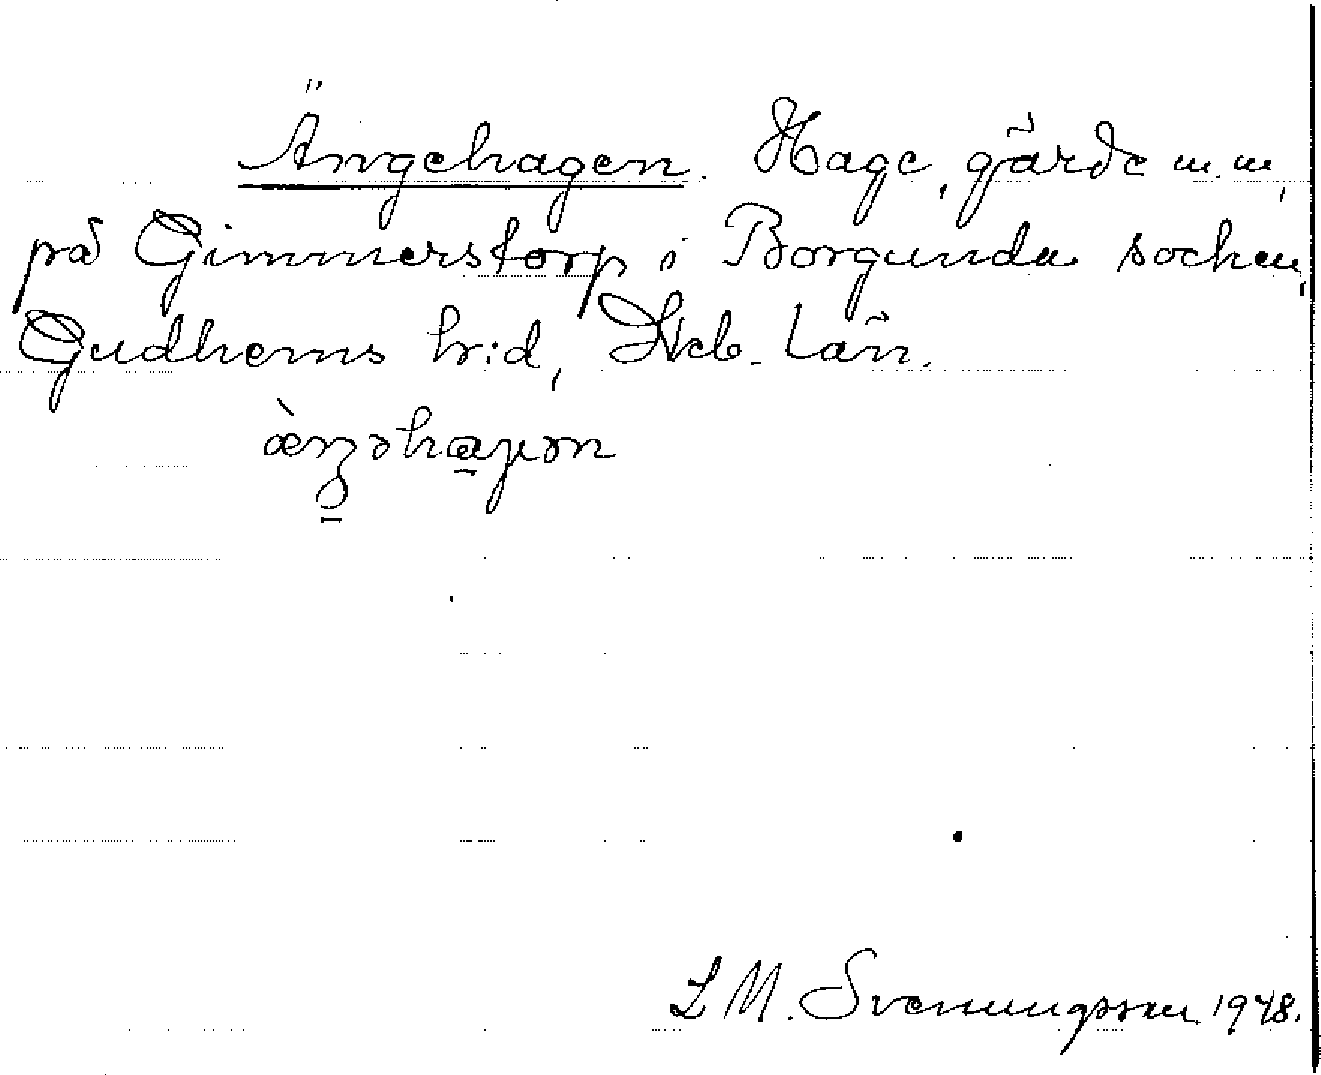 Ängehagen. Hage, gärde m.m,
på Gimmerstorp i Borgunda socken,
Gudhems hr:d, Skcb. län.
L M. Svenungsson 1948.